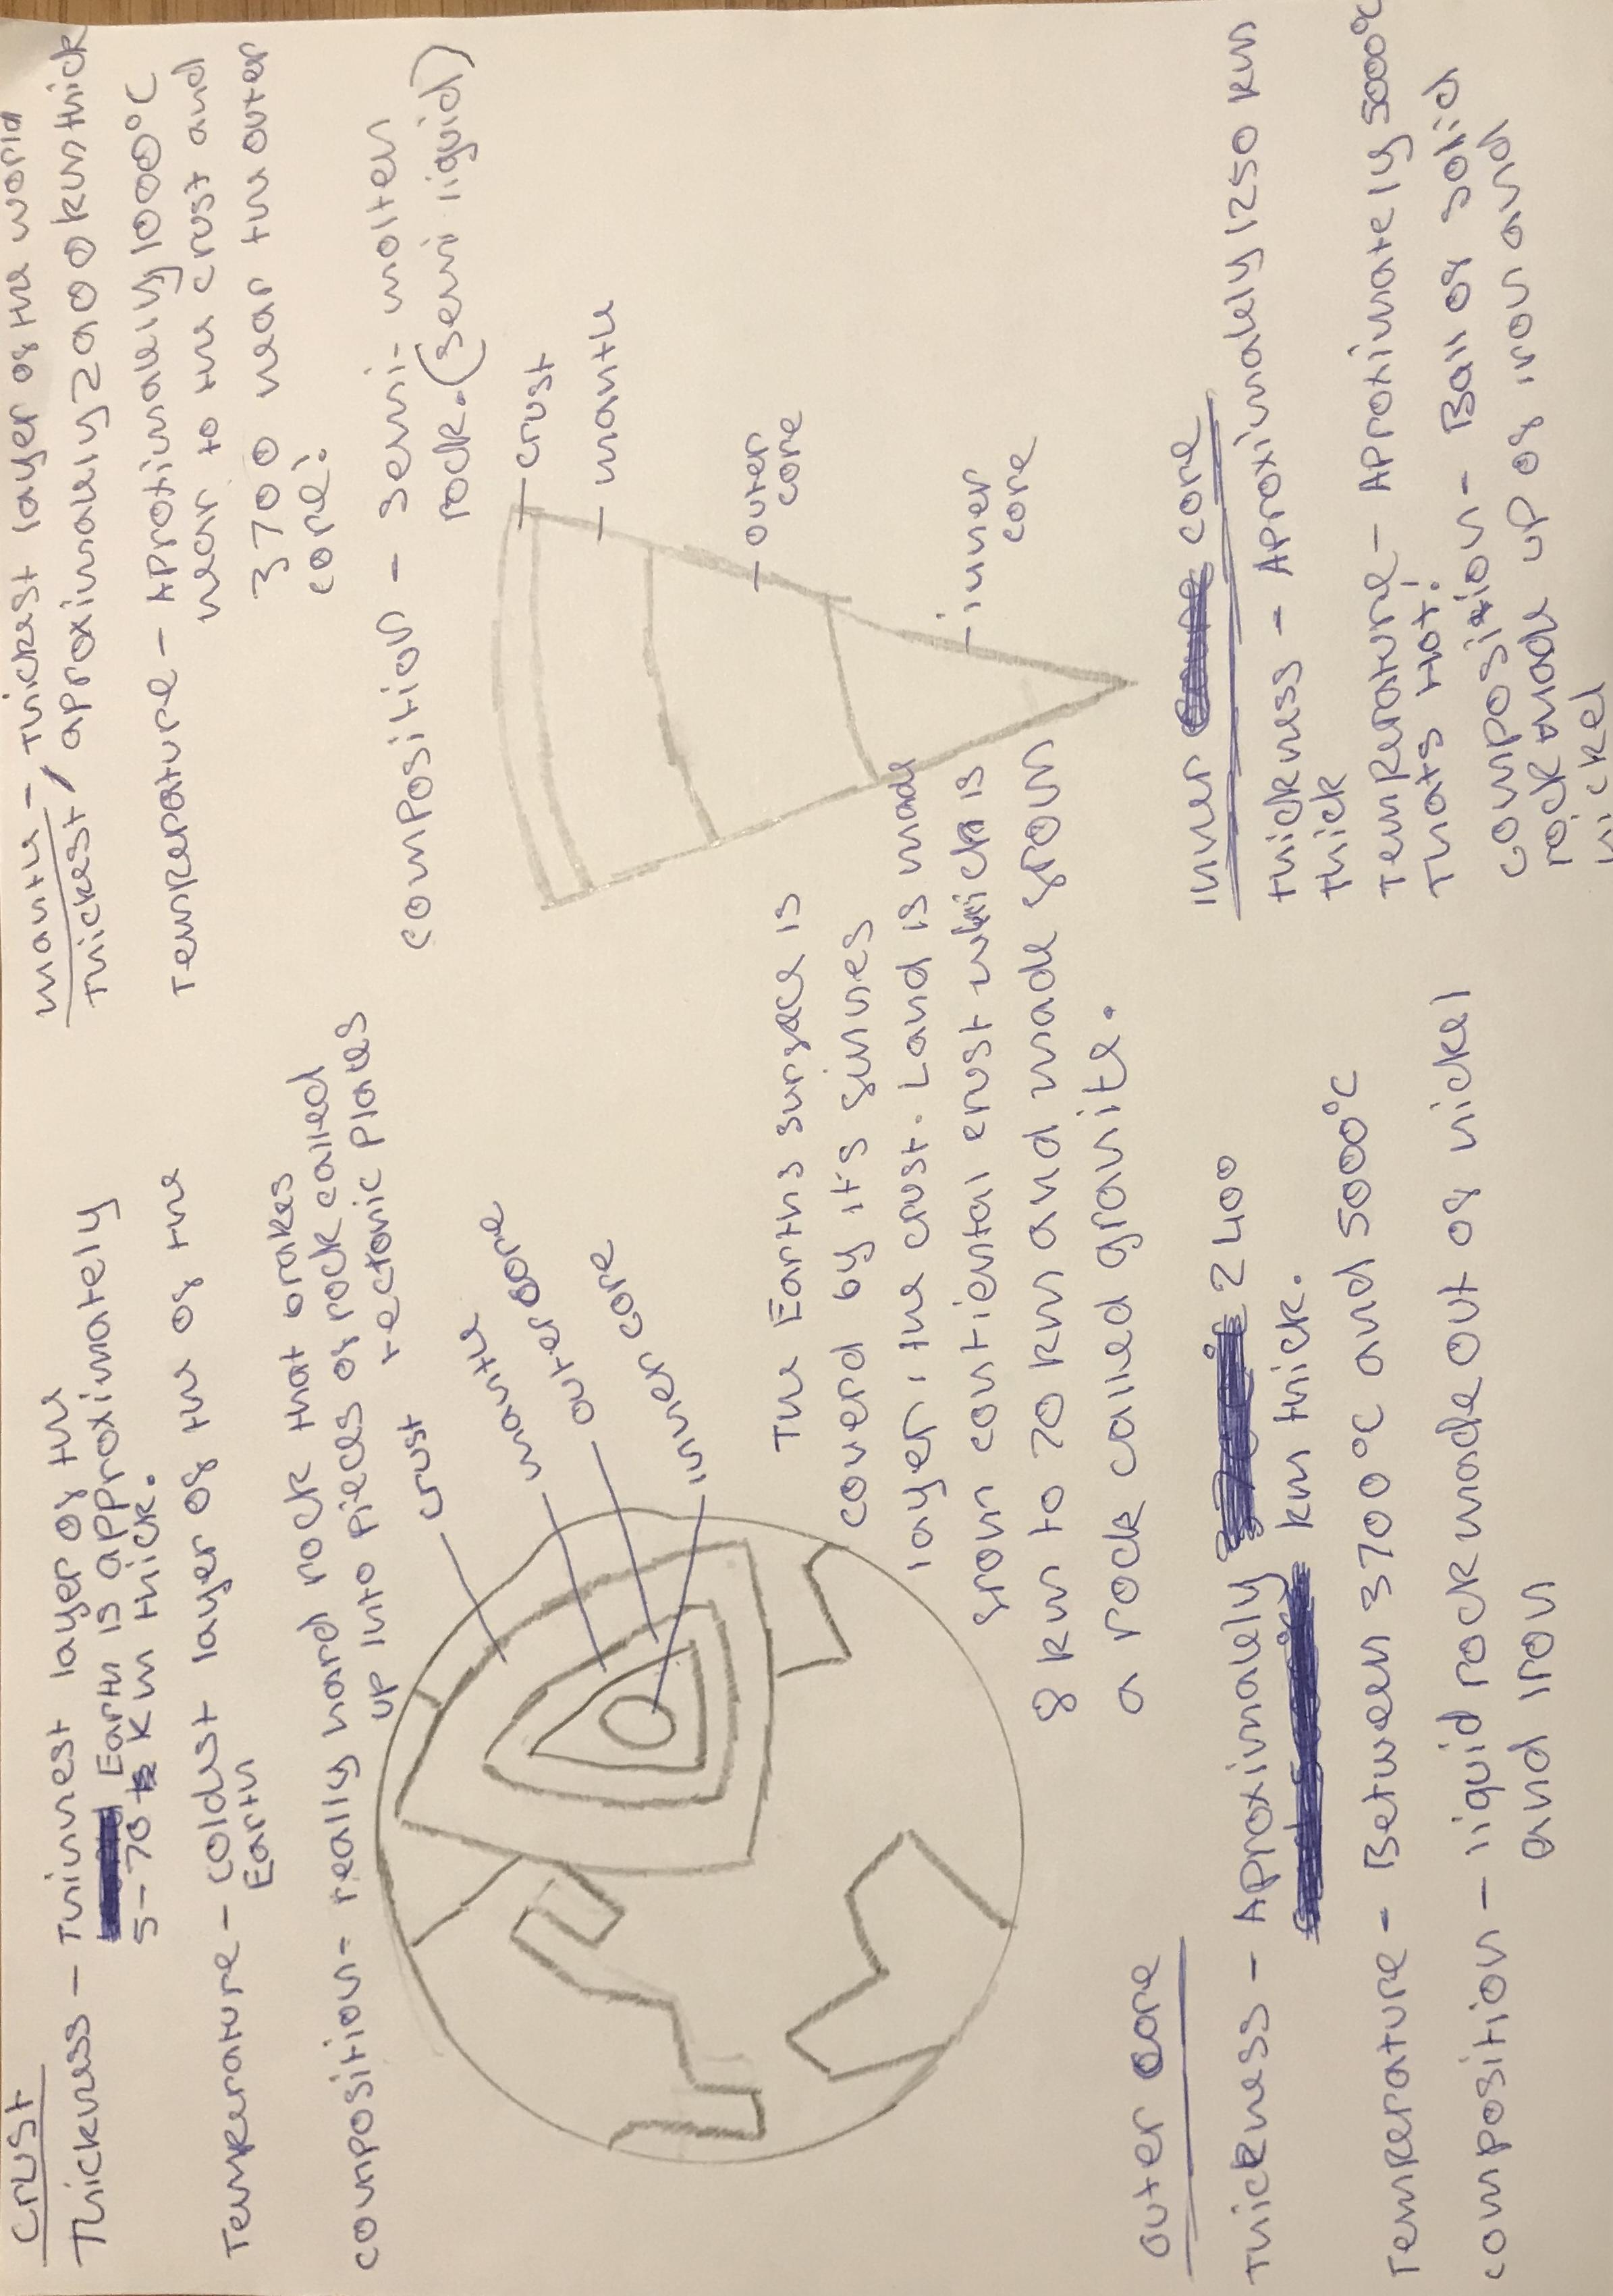 crust
Thickness - Thinnest layer of the
Earth is approximately
5-70 km thick.
Temperature - coldest layer of the of the
Earth
composition - really hard rock that brakes
up into pieces of rock called
tectonic plates
crust
mantle
outer core
inner core
The Earths surface is
coverd by it's finnes
layer, the crust. Land is made
from contiental crust which is
8 km to 70 km and made from
a rock called granite.
outer core
Thickness - Aproximalely 2400
km thick.
Temperature - Between 3700°C and 5000°C
composition - liquid rock made out of nickel
and iron
mantle - Thickest layer of the world
Thickest / aproximaley 2900km thick
Temperature - Aproximalely 1000°C
near to the crust and
3700 near the outer
core!
composition - semi-molten
rock. (semi liquid)
crust
mantle
outer
core
inner
core
inner core
thickness - Aproximalely 1250 km
thick
Temperature - Aproximately 5000°C
Thats Hot!
composition - Ball of solid
rock made up of iron and
nickel